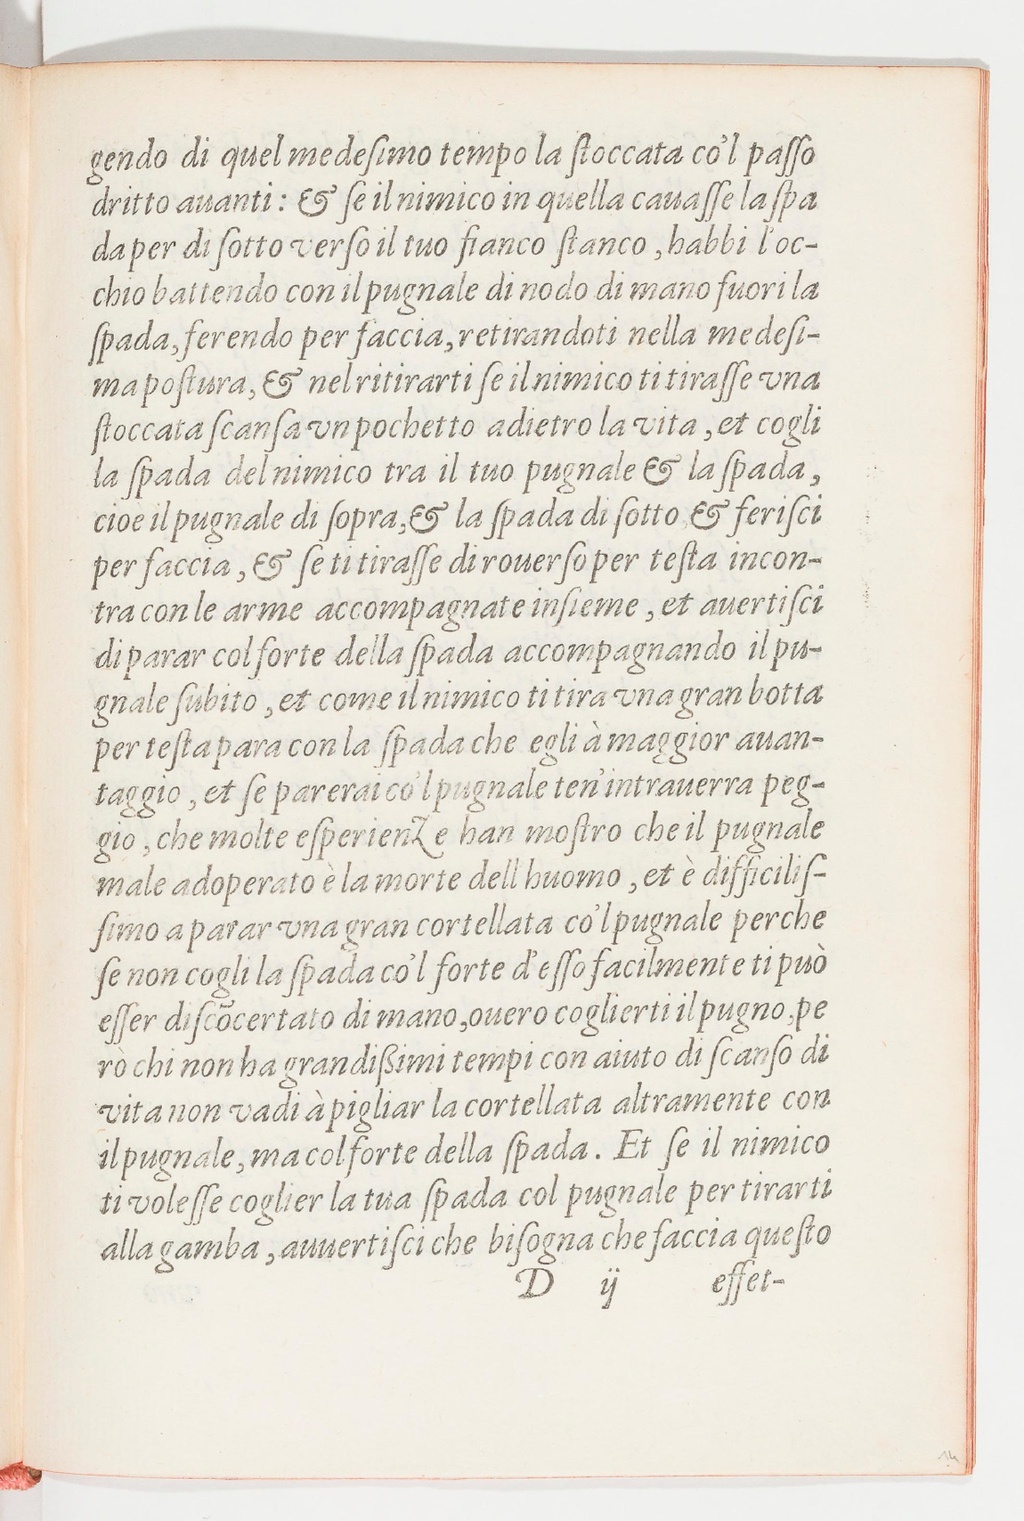 gendo di quel medeſimo tempo la ſtoccata co'l paſſo
dritto auanti: & ſe il nimico in quella cauaſſe la ſpa
da per di ſotto verſo il tuo fianco ſtanco, habbi l'oc-
chio battendo con il pugnale di nodo di mano fuori la
ſpada, ferendo per faccia, retirandoti nella medeſi-
ma poſtura, & nel ritirarti ſe il nimico ti tiraſſe vna
ſtoccata ſcanſa vn pochetto adietro la vita, et cogli
la ſpada del nimico tra il tuo pugnale & la ſpada,
cioè il pugnale di ſopra, & la ſpada di ſotto & feriſci
per faccia, & ſe ti tiraſſe di rouerſo per teſta incon-
tra con le arme accompagnate inſieme, et auertiſci
di parar col forte della ſpada accompagnando il pu-
gnale ſubito, et come il nimico ti tira vna gran botta
per teſta para con la ſpada che egli à maggior auan-
taggio, et ſe parerai co'l pugnale ten'intrauerra peg-
gio, che molte eſperienze han moſtro che il pugnale
male adoperato è la morte dell'huomo, et è difficiliſ-
ſimo a parar vna gran cortellata co'l pugnale perche
ſe non cogli la ſpada co'l forte d'eſſo facilmente ti può
eſſer diſcõcertato di mano, ouero coglierti il pugno, pe
rò chi non ha grandißimi tempi con aiuto di ſcanſo di
vita non vadi à pigliar la cortellata altramente con
il pugnale, ma col forte della ſpada. Et ſe il nimico
ti voleſſe coglier la tua ſpada col pugnale per tirarti
alla gamba, auuertiſci che biſogna che faccia queſto
D ij effet-
14